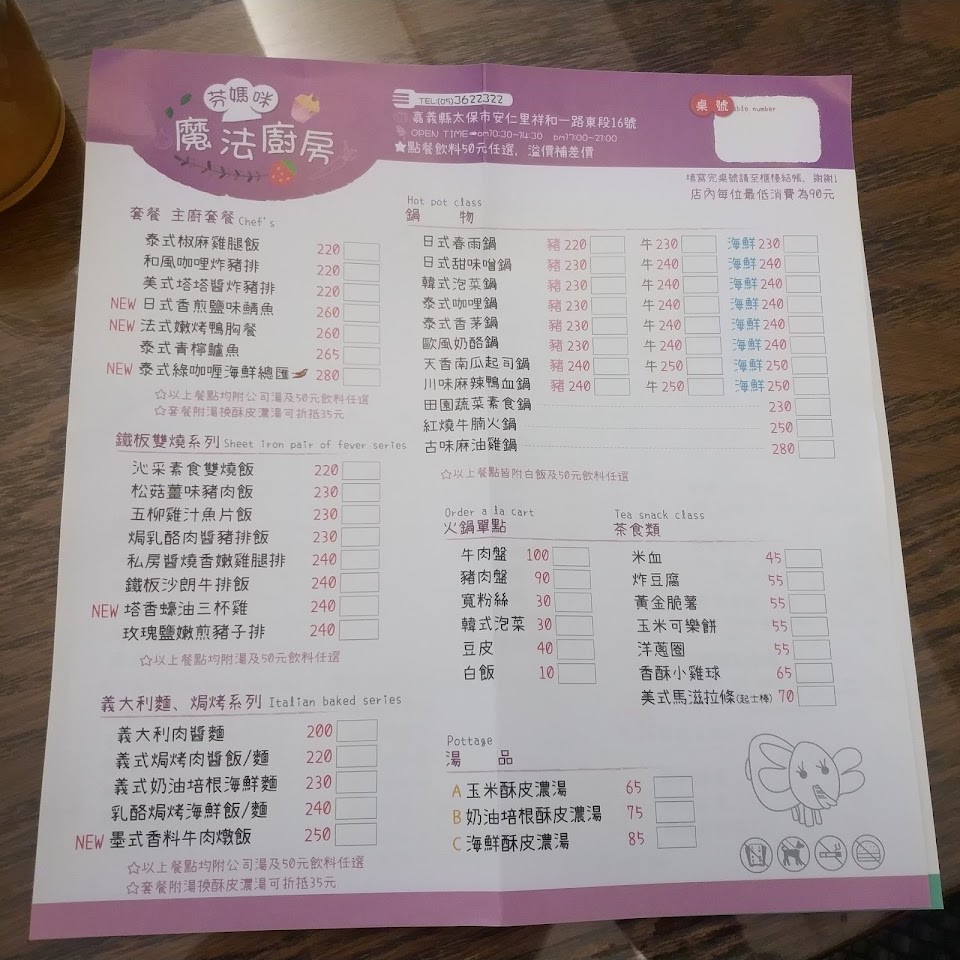 芬媽咪
魔法廚房
TEL:(05)3622322
嘉義縣太保市安仁里祥和一路東段16號
OPEN TIME➡am10:30~14:30 pm17:00~21:00
★點餐飲料50元任選, 溢價補差價
桌號 table number
填寫完桌號請至櫃檯結帳, 謝謝!
店內每位最低消費為90元
套餐 主廚套餐 Chef's
泰式椒麻雞腿飯 220
和風咖哩炸豬排 220
美式塔塔醬炸豬排 220
NEW 日式香煎鹽味鯖魚 260
NEW 法式嫩烤鴨胸餐 260
泰式青檸鱸魚 265
NEW 泰式綠咖喱海鮮總匯 280
☆以上餐點均附公司湯及50元飲料任選
☆套餐附湯換酥皮濃湯可折抵35元
鐵板雙燒系列 Sheet iron pair of fever series
沁采素食雙燒飯 220
松菇薑味豬肉飯 230
五柳雞汁魚片飯 230
焗乳酪肉醬豬排飯 230
私房醬燒香嫩雞腿排 240
鐵板沙朗牛排飯 240
NEW 塔香蠔油三杯雞 240
玫瑰鹽嫩煎豬子排 240
☆以上餐點均附湯及50元飲料任選
義大利麵、焗烤系列 Italian baked series
義大利肉醬麵 200
義式焗烤肉醬飯/麵 220
義式奶油培根海鮮麵 230
乳酪焗烤海鮮飯/麵 240
NEW 墨式香料牛肉燉飯 250
☆以上餐點均附公司湯及50元飲料任選
☆套餐附湯換酥皮濃湯可折抵35元
Hot pot class
鍋 物
日式春雨鍋 豬220 牛230 海鮮230
日式甜味噌鍋 豬230 牛240 海鮮240
韓式泡菜鍋 豬230 牛240 海鮮240
泰式咖哩鍋 豬230 牛240 海鮮240
泰式香茅鍋 豬230 牛240 海鮮240
歐風奶酪鍋 豬230 牛240 海鮮240
天香南瓜起司鍋 豬240 牛250 海鮮250
川味麻辣鴨血鍋 豬240 牛250 海鮮250
田園蔬菜素食鍋 230
紅燒牛腩火鍋 250
古味麻油雞鍋 280
☆以上餐點皆附白飯及50元飲料任選
Order a la cart
火鍋單點
牛肉盤 100
豬肉盤 90
寬粉絲 30
韓式泡菜 30
豆皮 40
白飯 10
Tea snack class
茶食類
米血 45
炸豆腐 55
黃金脆薯 55
玉米可樂餅 55
洋蔥圈 55
香酥小雞球 65
美式馬滋拉條(起士棒) 70
Pottage
湯 品
A 玉米酥皮濃湯 65
B 奶油培根酥皮濃湯 75
C 海鮮酥皮濃湯 85